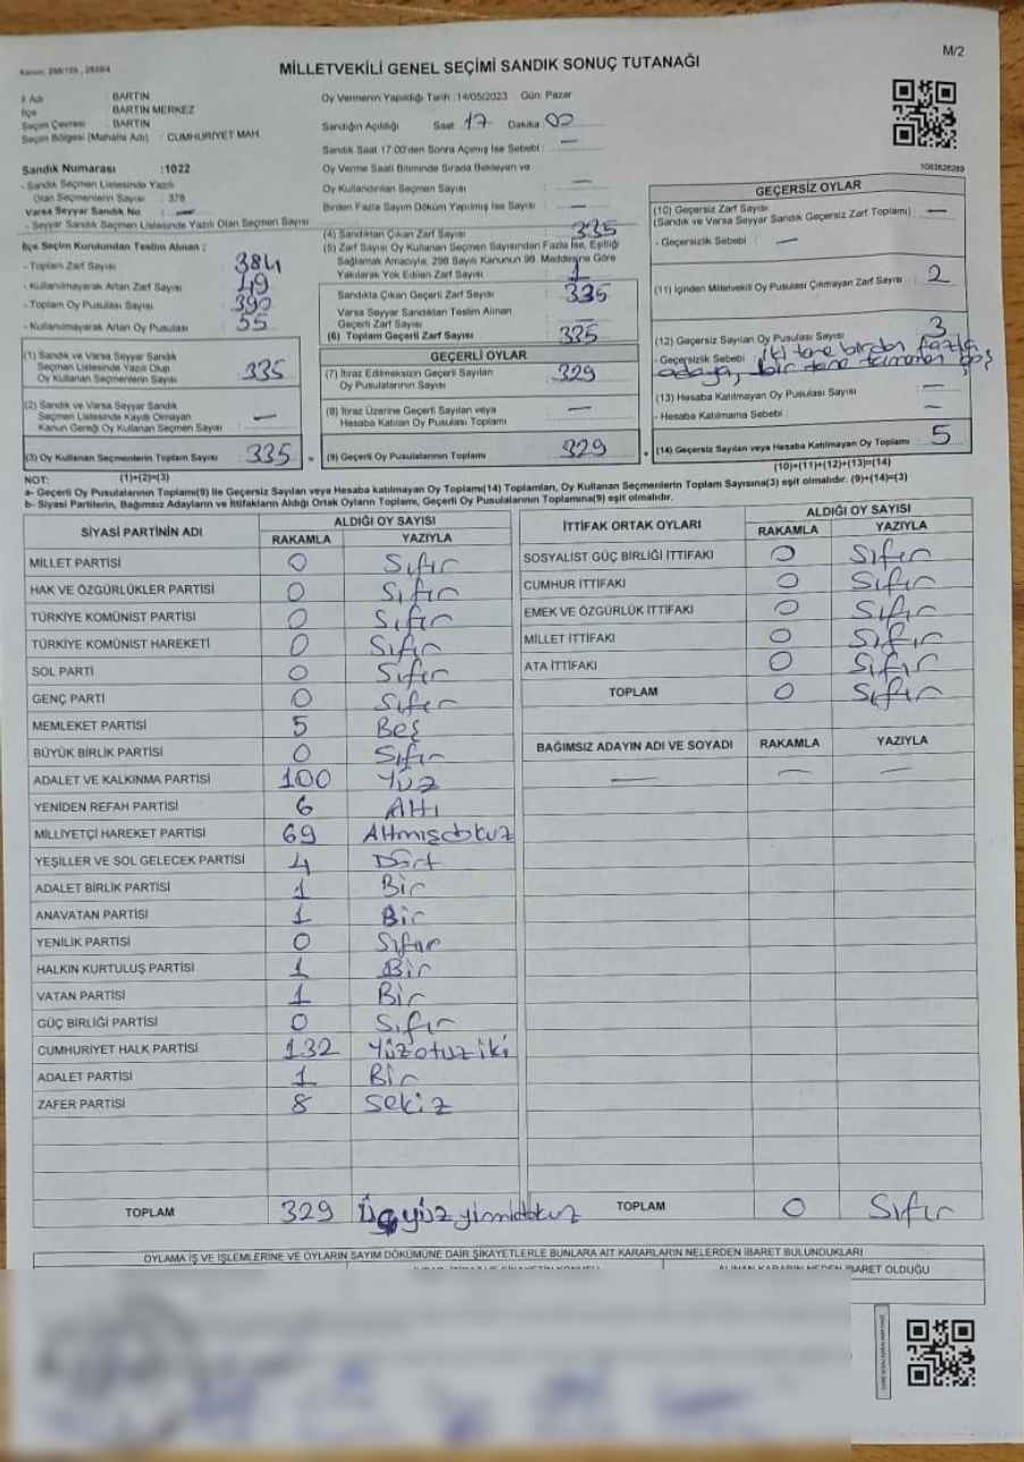 M/2
MİLLETVEKİLİ GENEL SEÇİMİ SANDIK SONUÇ TUTANAĞI
İl Adı BARTIN
İlçe BARTIN MERKEZ
Seçim Çevresi BARTIN
Seçim Bölgesi (Mahalle Adı) : CUMHURİYET MAH.
Sandık Numarası :1022
- Sandık Seçmen Listesinde Yazılı
Olan Seçmenlerin Sayısı : 378
Varsa Seyyar Sandık No : —
- Seyyar Sandık Seçmen Listesinde Yazılı Olan Seçmen Sayısı
İlçe Seçim Kurulundan Teslim Alınan ;
- Toplam Zarf Sayısı 384
- Kullanılmayarak Artan Zarf Sayısı 49
- Toplam Oy Pusulası Sayısı 390
- Kullanılmayarak Artan Oy Pusulası 55
(1) Sandık ve Varsa Seyyar Sandık
Seçmen Listesinde Yazılı Olup
Oy Kullanan Seçmenlerin Sayısı 335
(2) Sandık ve Varsa Seyyar Sandık
Seçmen Listesinde Kayıtlı Olmayan
Kanun Gereği Oy Kullanan Seçmen Sayısı —
(3) Oy Kullanan Seçmenlerin Toplam Sayısı 335
(1)+(2)=(3)
Oy Vermenin Yapıldığı Tarih :14/05/2023 Gün: Pazar
Sandığın Açıldığı Saat 17 Dakika 00
Sandık Saat 17:00'den Sonra Açılmış İse Sebebi : —
Oy Verme Saati Bitiminde Sırada Bekleyen ve
Oy Kullandırılan Seçmen Sayısı : —
Birden Fazla Sayım Döküm Yapılmış İse Sayısı : —
(4) Sandıktan Çıkan Zarf Sayısı 335
(5) Zarf Sayısı Oy Kullanan Seçmen Sayısından Fazla İse, Eşitliği
Sağlamak Amacıyla, 298 Sayılı Kanunun 98. Maddesine Göre
Yakılarak Yok Edilen Zarf Sayısı
Sandıkta Çıkan Geçerli Zarf Sayısı 335
Varsa Seyyar Sandıktan Teslim Alınan
Geçerli Zarf Sayısı
(6) Toplam Geçerli Zarf Sayısı 335
GEÇERLİ OYLAR
(7) İtiraz Edilmeksizin Geçerli Sayılan
Oy Pusulalarının Sayısı 329
(8) İtiraz Üzerine Geçerli Sayılan veya
Hesaba Katılan Oy Pusulası Toplamı —
(9) Geçerli Oy Pusulalarının Toplamı 329
1083828289
GEÇERSİZ OYLAR
(10) Geçersiz Zarf Sayısı
(Sandık ve Varsa Seyyar Sandık Geçersiz Zarf Toplamı) —
- Geçersizlik Sebebi : —
(11) İçinden Milletvekili Oy Pusulası Çıkmayan Zarf Sayısı 2
(12) Geçersiz Sayılan Oy Pusulası Sayısı 3
- Geçersizlik Sebebi : iki tane birden fazla
adaya, bir tane tamamen boş
(13) Hesaba Katılmayan Oy Pusulası Sayısı —
- Hesaba Katılmama Sebebi : —
(14) Geçersiz Sayılan veya Hesaba Katılmayan Oy Toplamı 5
(10)+(11)+(12)+(13)=(14)
NOT:
a- Geçerli Oy Pusulalarının Toplamı(9) ile Geçersiz Sayılan veya Hesaba katılmayan Oy Toplamı(14) Toplamları, Oy Kullanan Seçmenlerin Toplam Sayısına(3) eşit olmalıdır. (9)+(14)=(3)
b- Siyasi Partilerin, Bağımsız Adayların ve İttifakların Aldığı Ortak Oyların Toplamı, Geçerli Oy Pusulalarının Toplamına(9) eşit olmalıdır.
SİYASİ PARTİNİN ADI ALDIĞI OY SAYISI
RAKAMLA YAZIYLA
MİLLET PARTİSİ 0 Sıfır
HAK VE ÖZGÜRLÜKLER PARTİSİ 0 Sıfır
TÜRKİYE KOMÜNİST PARTİSİ 0 Sıfır
TÜRKİYE KOMÜNİST HAREKETİ 0 Sıfır
SOL PARTİ 0 Sıfır
GENÇ PARTİ 0 Sıfır
MEMLEKET PARTİSİ 5 Beş
BÜYÜK BİRLİK PARTİSİ 0 Sıfır
ADALET VE KALKINMA PARTİSİ 100 Yüz
YENİDEN REFAH PARTİSİ 6 Altı
MİLLİYETÇİ HAREKET PARTİSİ 69 Altmışdokuz
YEŞİLLER VE SOL GELECEK PARTİSİ 4 Dört
ADALET BİRLİK PARTİSİ 1 Bir
ANAVATAN PARTİSİ 1 Bir
YENİLİK PARTİSİ 0 Sıfır
HALKIN KURTULUŞ PARTİSİ 1 Bir
VATAN PARTİSİ 1 Bir
GÜÇ BİRLİĞİ PARTİSİ 0 Sıfır
CUMHURİYET HALK PARTİSİ 132 Yüzotuziki
ADALET PARTİSİ 1 Bir
ZAFER PARTİSİ 8 Sekiz
TOPLAM 329 Üçyüzyirmidokuz
İTTİFAK ORTAK OYLARI ALDIĞI OY SAYISI
RAKAMLA YAZIYLA
SOSYALİST GÜÇ BİRLİĞİ İTTİFAKI 0 Sıfır
CUMHUR İTTİFAKI 0 Sıfır
EMEK VE ÖZGÜRLÜK İTTİFAKI 0 Sıfır
MİLLET İTTİFAKI 0 Sıfır
ATA İTTİFAKI 0 Sıfır
TOPLAM 0 Sıfır
BAĞIMSIZ ADAYIN ADI VE SOYADI RAKAMLA YAZIYLA
— — —
TOPLAM 0 Sıfır
OYLAMA İŞ VE İŞLEMLERİNE VE OYLARIN SAYIM DÖKÜMÜNE DAİR ŞİKAYETLERLE BUNLARA AİT KARARLARIN NELERDEN İBARET BULUNDUKLARI
ALINAN KARARIN NEDEN İBARET OLDUĞU